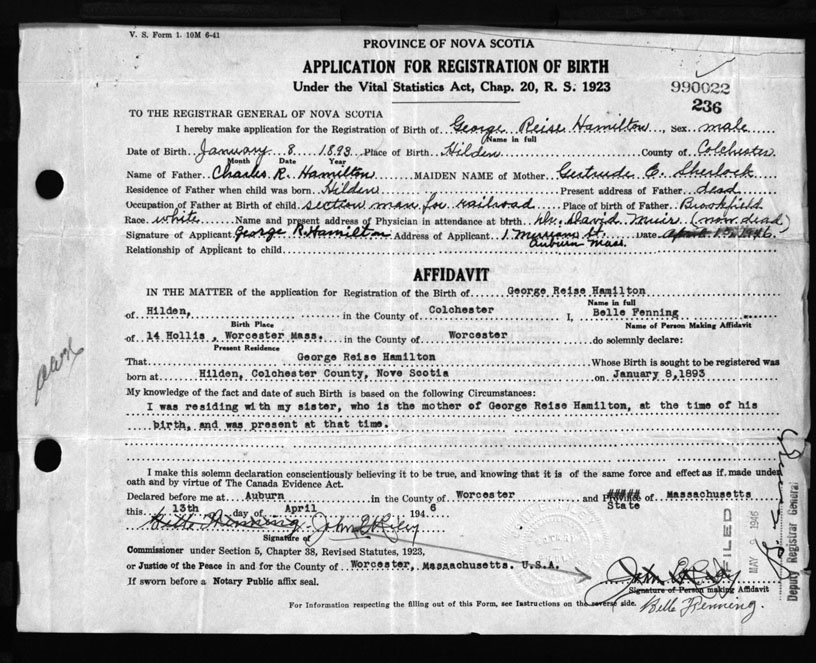 V. S. Form 1. 10M 6-41
PROVINCE OF NOVA SCOTIA
APPLICATION FOR REGISTRATION OF BIRTH
Under the Vital Statistics Act, Chap. 20, R. S. 1923
990022
236
TO THE REGISTRAR GENERAL OF NOVA SCOTIA
I hereby make application for the Registration of Birth of George Reise Hamilton, Sex male
Name in full
Date of Birth January 8 1893 Place of Birth Hilden County of Colchester
Month Date Year
Name of Father Charles R. Hamilton MAIDEN NAME of Mother Gertrude C. Sherlock
Residence of Father when child was born Hilden Present address of Father dead
Occupation of Father at Birth of child section man for railroad Place of birth of Father Brookfield
Race white Name and present address of Physician in attendance at birth Dr. David Muir (now dead)
Signature of Applicant George R. Hamilton Address of Applicant 1. St. Date April 1946.
Auburn Mass.
Relationship of Applicant to child
AFFIDAVIT
IN THE MATTER of the application for Registration of the Birth of George Reise Hamilton
Name in full
of Hilden, in the County of Colchester I, Belle Fenning
Birth Place Name of Person Making Affidavit
of 14 Hollis, Worcester Mass. in the County of Worcester do solemnly declare:
Present Residence
That George Reise Hamilton Whose Birth is sought to be registered was
born at Hilden, Colchester County, Nova Scotia on January 8, 1893
My knowledge of the fact and date of such Birth is based on the following Circumstances:
I was residing with my sister, who is the mother of George Reise Hamilton, at the time of his
birth, and was present at that time.
I make this solemn declaration conscientiously believing it to be true, and knowing that it is of the same force and effect as if made under
oath and by virtue of The Canada Evidence Act.
Declared before me at Auburn in the County of Worcester and ##### of Massachusetts
State
this 13th day of April 1946
Belle Fenning John
Signature of
Commissioner under Section 5, Chapter 38, Revised Statutes, 1923,
or Justice of the Peace in and for the County of Worcester, Massachusetts. U.S.A.
If sworn before a Notary Public affix seal.
John
Signature of Person making Affidavit
Belle Fenning.
For Information respecting the filling out of this Form, see Instructions on the reverse side.
FILED
MAY 9 1946
Deputy Registrar General